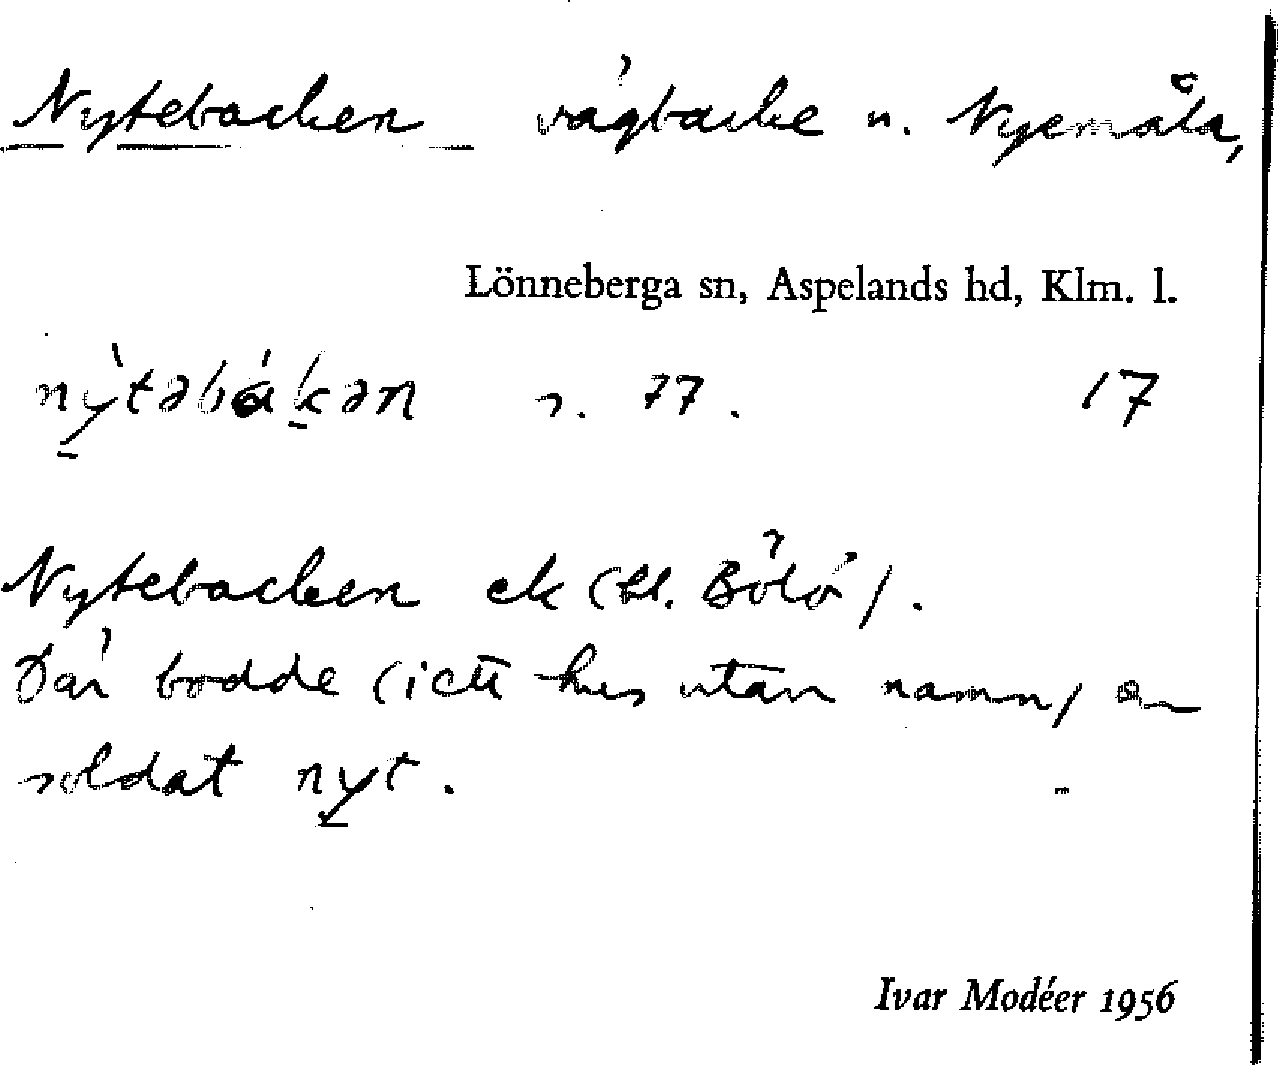 Nytebacken vägbacke n. Nyemåla,
Lönneberga sn, Aspelands hd, Klm. l.
nỳtəbákən s. 77. 17
Nytebacken ek (bl. Bölö).
Där bodde (i ett hus utan namn) en
soldat nyt.
Ivar Modéer 1956